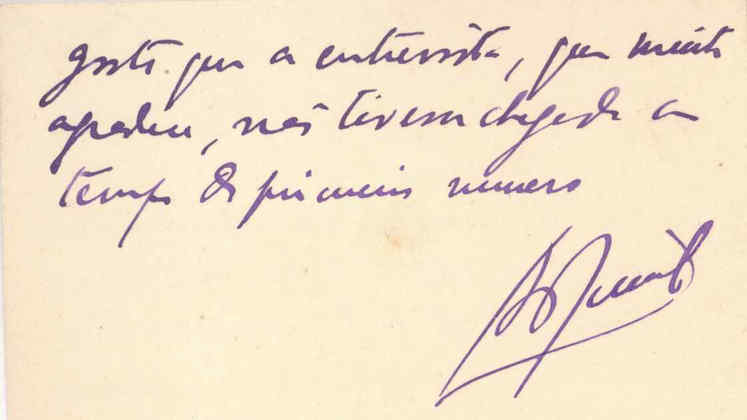 gosto que a entrevista, que muito
agradeceu, não tivesse chegado a
tempo do primeiro numero